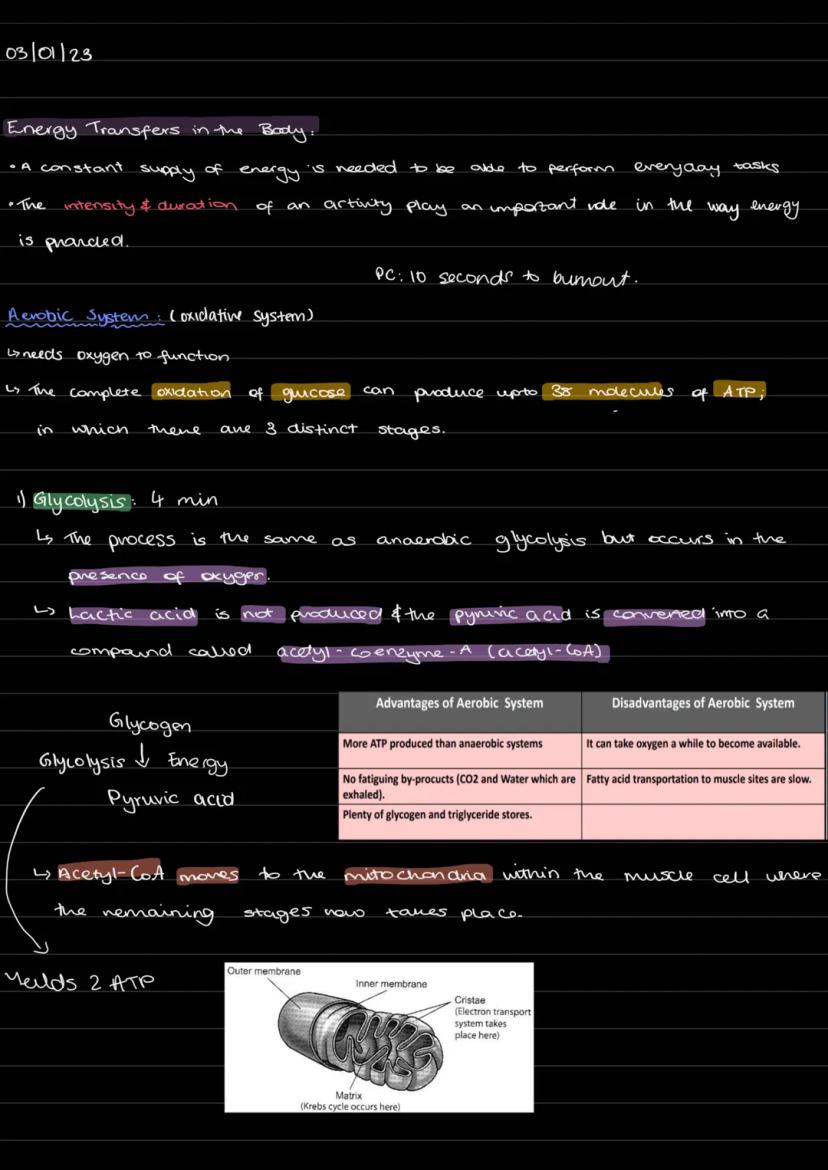 03/01/23
Energy Transfers in the Body:
• A constant supply of energy is needed to be able to perform everyday tasks
• The intensity & duration of an activity play an important role in the way energy
is provided.
PC: 10 seconds to burnout.
Aerobic System: (oxidative system)
↳ needs oxygen to function
↳ The complete oxidation of glucose can produce upto 38 molecules of ATP;
in which there are 3 distinct stages.
1) Glycolysis: 4 min
↳ The process is the same as anaerobic glycolysis but occurs in the
presence of oxygen.
↳ Lactic acid is not produced & the pyruvic acid is converted into a
compound called acetyl-coenzyme-A (acetyl-CoA)
Glycogen
Glycolysis ↓ Energy
Pyruvic acid
Advantages of Aerobic System Disadvantages of Aerobic System
More ATP produced than anaerobic systems It can take oxygen a while to become available.
No fatiguing by-procucts (CO2 and Water which are Fatty acid transportation to muscle sites are slow.
exhaled).
Plenty of glycogen and triglyceride stores.
↳ Acetyl-CoA moves to the mitochondria within the muscle cell where
the remaining stages now takes place.
Yeilds 2 ATP
Outer membrane
Inner membrane
Cristae
(Electron transport
system takes
place here)
Matrix
(Krebs cycle occurs here)